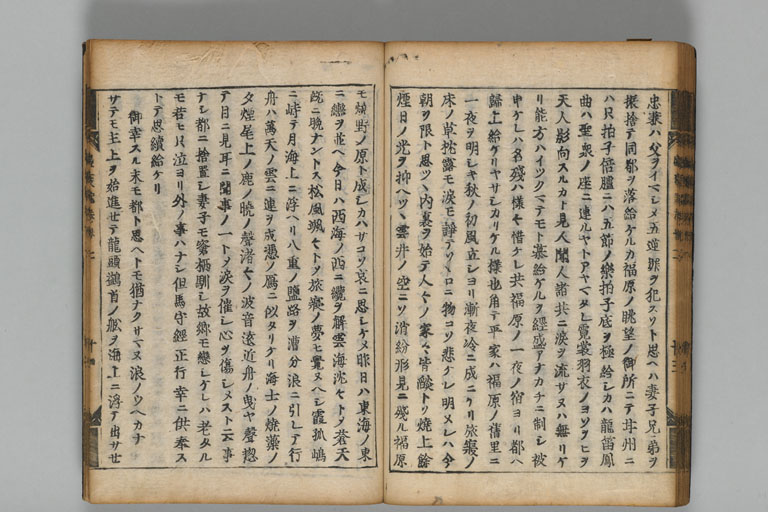 忠兼ハ父ヲイマシメ五逆罪ヲ犯スソト思ヘハ妻子兄弟ヲ
振捨テ同都ヲ落給ケルカ福原ノ眺望ノ御所ニテ
八尺拍子倍臚ニハ五節ノ樂拍子底ヲ極給シカハ龍笛鳳
曲ハ聖衆ノ座ニ連ルヤトアヤマタレ霓裳羽衣ノヨソヲヒヲ
天人影向スルカト見人聞人諸共ニ涙ヲ流サヌハ無リケ
リ能方ハイツクマテモト慕給ケルヲ經盛アナカチニ制シ被
申ケレハ名殘ハ様々惜ケレ共福原ノ一夜ノ宿ヨリ都ヘ
歸上給ケリヤサシカリケル様也角テ平家ハ福原ノ舊里ニ
一夜ヲ明シヤ秋ノ初風立シヨリ漸夜冷ニ成ニケリ旅寢ノ
床ノ草枕露モ涙モ諍テソヽロニ物コソ悲ケレ明メレハ今
朝ヲ限ト思ツヽ内裏ヲ始テ人々ノ家々皆
煙日ノ光ヲ抑ヘツヽ雲井ノ空ニソ消紛形見ニ殘ル福原
モ燒野ノ原ト成シカハサコソ哀ニ思シケメ昨日ハ東海ノ東
ニ轡ヲ並ヘ今日ハ西海ノ西ニ纜ヲ解雲海沈々トシヲ蒼天
既ニ晩ナントス松風颯々トシヲ旅寢ノ夢モ覺ヌヘシ霞孤嶋
ニ峙テ月海上ニ浮ヘリ八重ノ鹽路ヲ漕分浪ニ引レテ行
舟ハ萬天ノ雲ニ連ヲ成憑ノ鴈ニ似タリケリ海士ノ燒藻ノ
夕煙尾上ノ鹿ノ曉ノ聲渚々ノ波音遠近舟ノ曳ヤ聲惣
テ目ニ見耳ニ聞事ノ一トシヲ涙ヲ催シ心ヲ傷シメスト云事
ナシ都ニ捨置シ妻子モ窓
モ若モ只泣ヨリ外ノ事ハナシ但馬守經正行幸ニ供奉ス
トテ思續給ケリ
御幸スル末モ都ト思ヘトモ猶ナクサマヌ浪ノウヘカナ
サテモ主上ヲ始進セテ龍頭鷁首ノ舩ヲ海上ニ浮テ出サセ